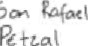 San Rafael
Petzal